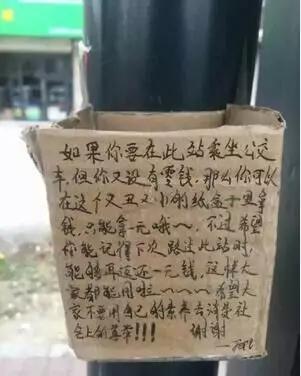 如果你要在此站乘坐公交
车,但你又没有零钱,那么你可以
在这个又丑又小的纸盒子里拿
钱,只能拿一元哦~,不过希望
你能记得下次路过此站时,
能够再返还一元钱,这样大
家都能用啦~~~~希望大
家不要用自己的素养去消费社
会上的尊荣!!! 谢谢